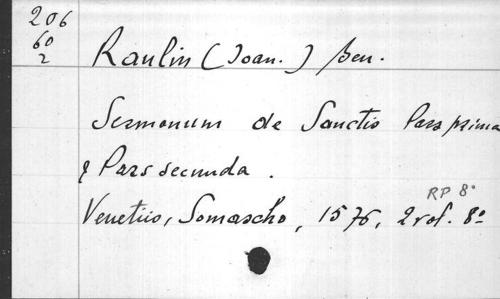 206
60
2
Raulin (Joan.) Ben.
Sermonum de Sanctis Pars prima
& Pars secunda.
RP 8º
Venetiis, Somascho, 1575, 2 vol. 8º